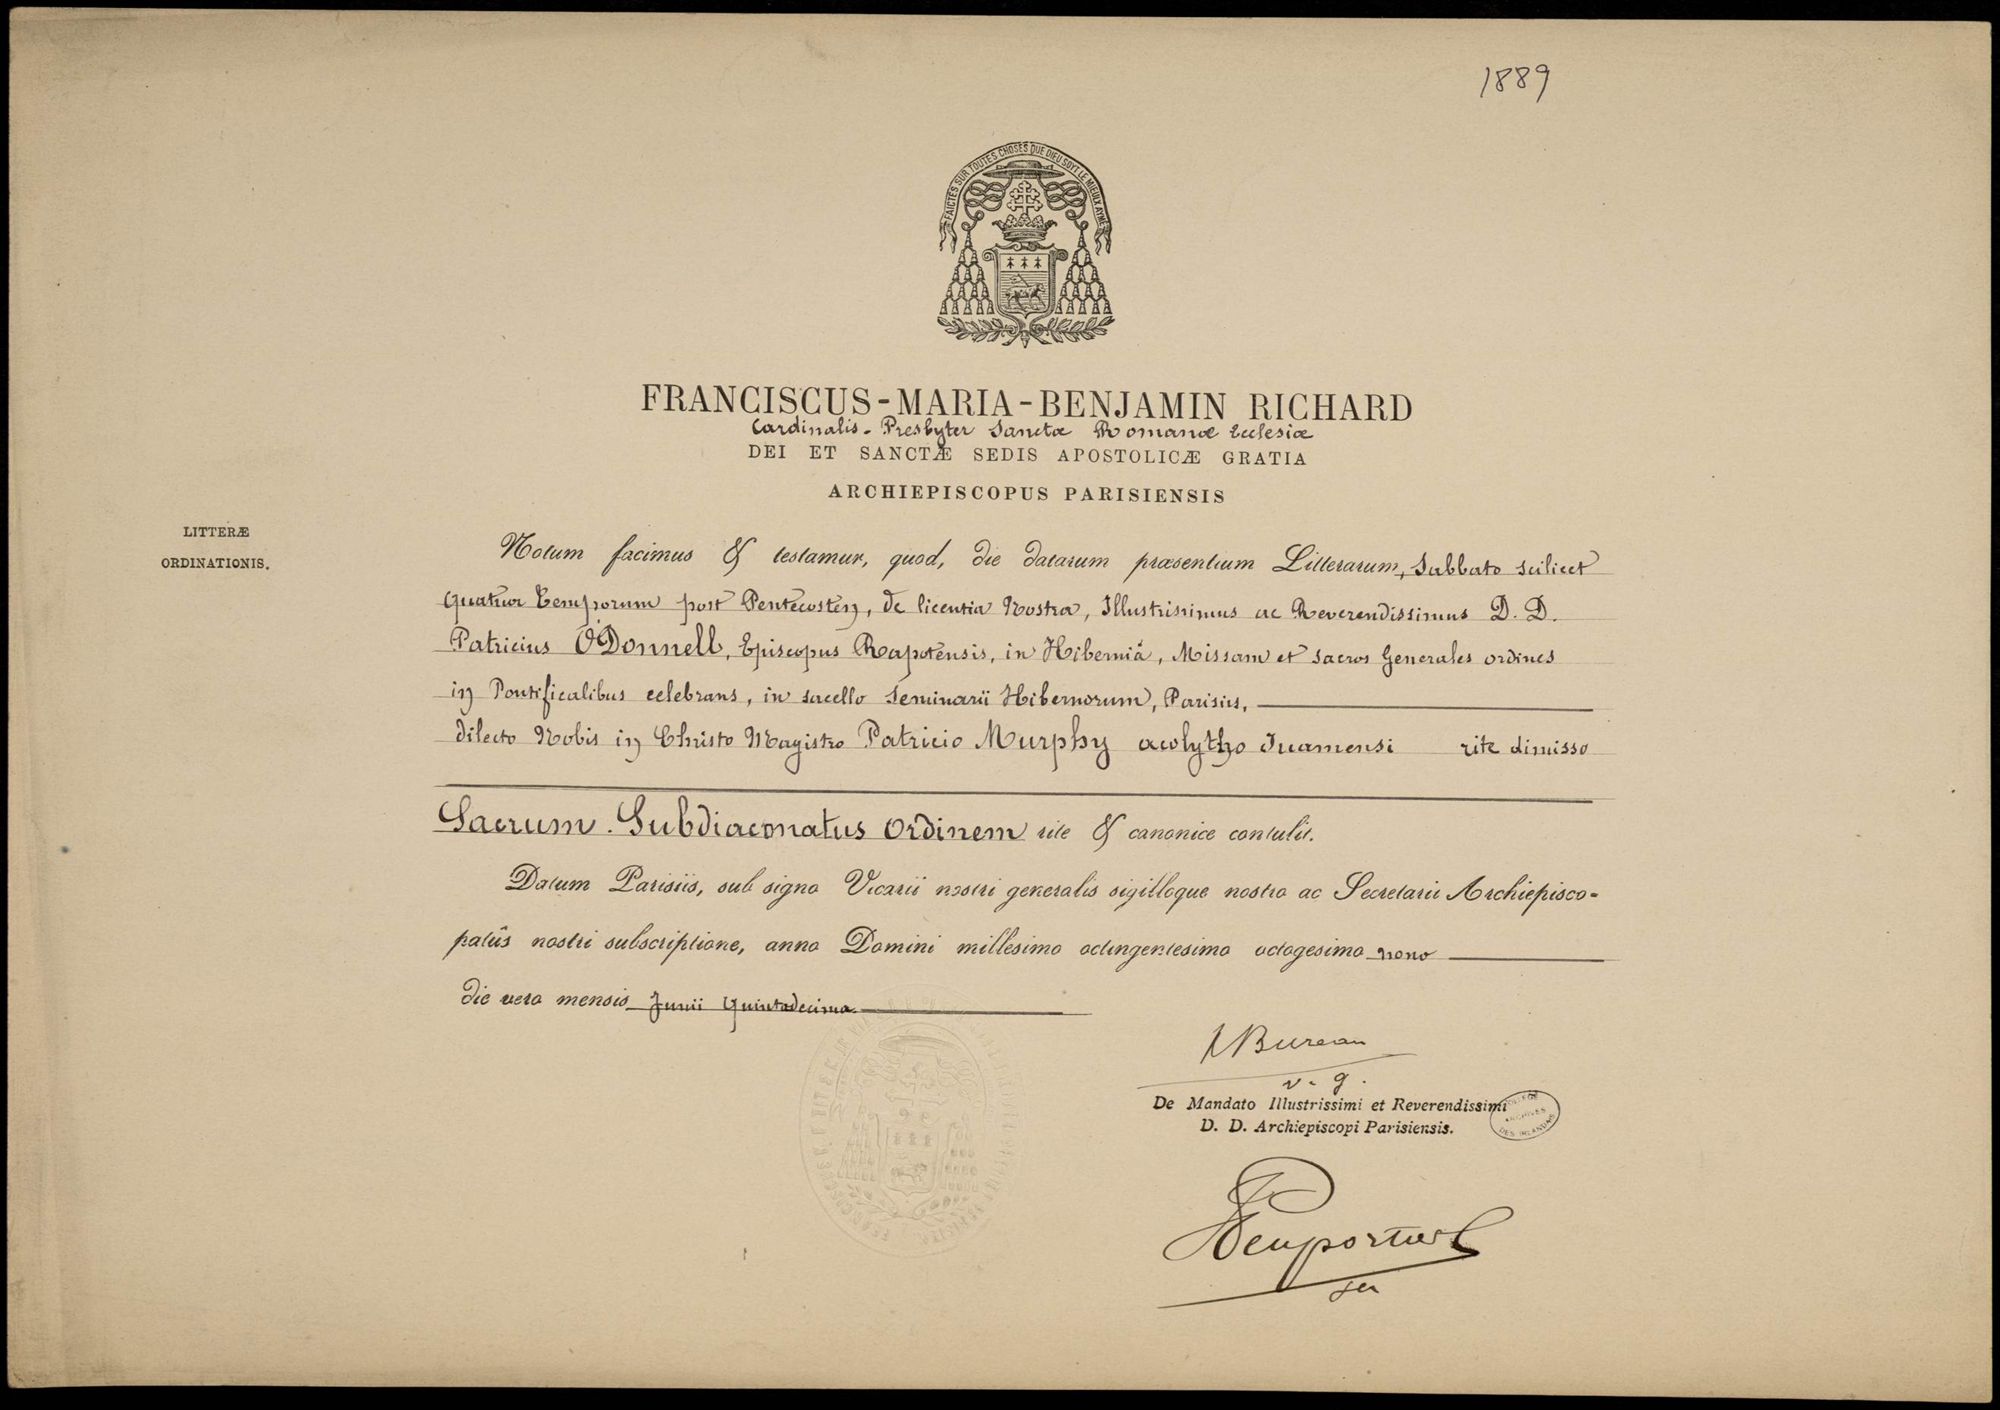 1889
FAICTES SUR TOUTES CHOSES QUE DIEU SOYT LE MIEULX AYMÉ
FRANCISCUS-MARIA-BENJAMIN RICHARD
Cardinalis-Presbyter Sanctæ Romanæ Ecclesiæ
DEI ET SANCTÆ SEDIS APOSTOLICÆ GRATIA
ARCHIEPISCOPUS PARISIENSIS
LITTERÆ
ORDINATIONIS.
Notum facimus & testamur, quod, die datarum præsentium Litterarum, Sabbato scilicet
Quatuor Temporum post Pentecosten, de licentia Nostra, Illustrissimus ac Reverendissimus D. D.
Patricius O'Donnell, Episcopus Rapotensis, in Hiberniâ, Missam et sacros Generales ordines
in Pontificalibus celebrans, in sacello Seminarii Hibernorum, Parisiis,
dilecto Nobis in Christo Magistro Patricio Murphy acolytho Tuamensi rite dimisso
Sacrum Subdiaconatus Ordinem rite & canonice contulit.
Datum Parisiis, sub signo Vicarii nostri generalis sigilloque nostro ac Secretarii Archiepisco-
patûs nostri subscriptione, anno Domini millesimo octingentesimo octogesimo nono
die vero mensis Junii Quintadecima
Bureau
v. g.
De Mandato Illustrissimi et Reverendissimi
D. D. Archiepiscopi Parisiensis.
COLLÈGE
ARCHIVES
DES IRLANDAIS